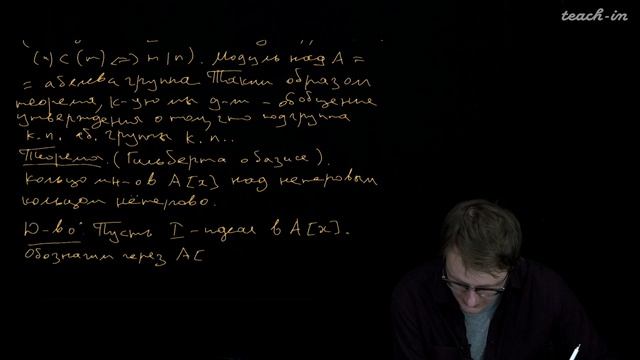 teach-in
(n) ⊂ (m) ⟺ m | n). Модуль над A =
= абелева группа Таким образом
теорема, к-ую мы д-м - обобщение
утверждения о том, что подгруппа
к.п. аб. группы к.п..
Теорема. (Гильберта о базисе).
Кольцо мн-ов A[x] над нетеровым
кольцом нётерово.
Д-во: Пусть I - идеал в A[x].
Обозначим через A[